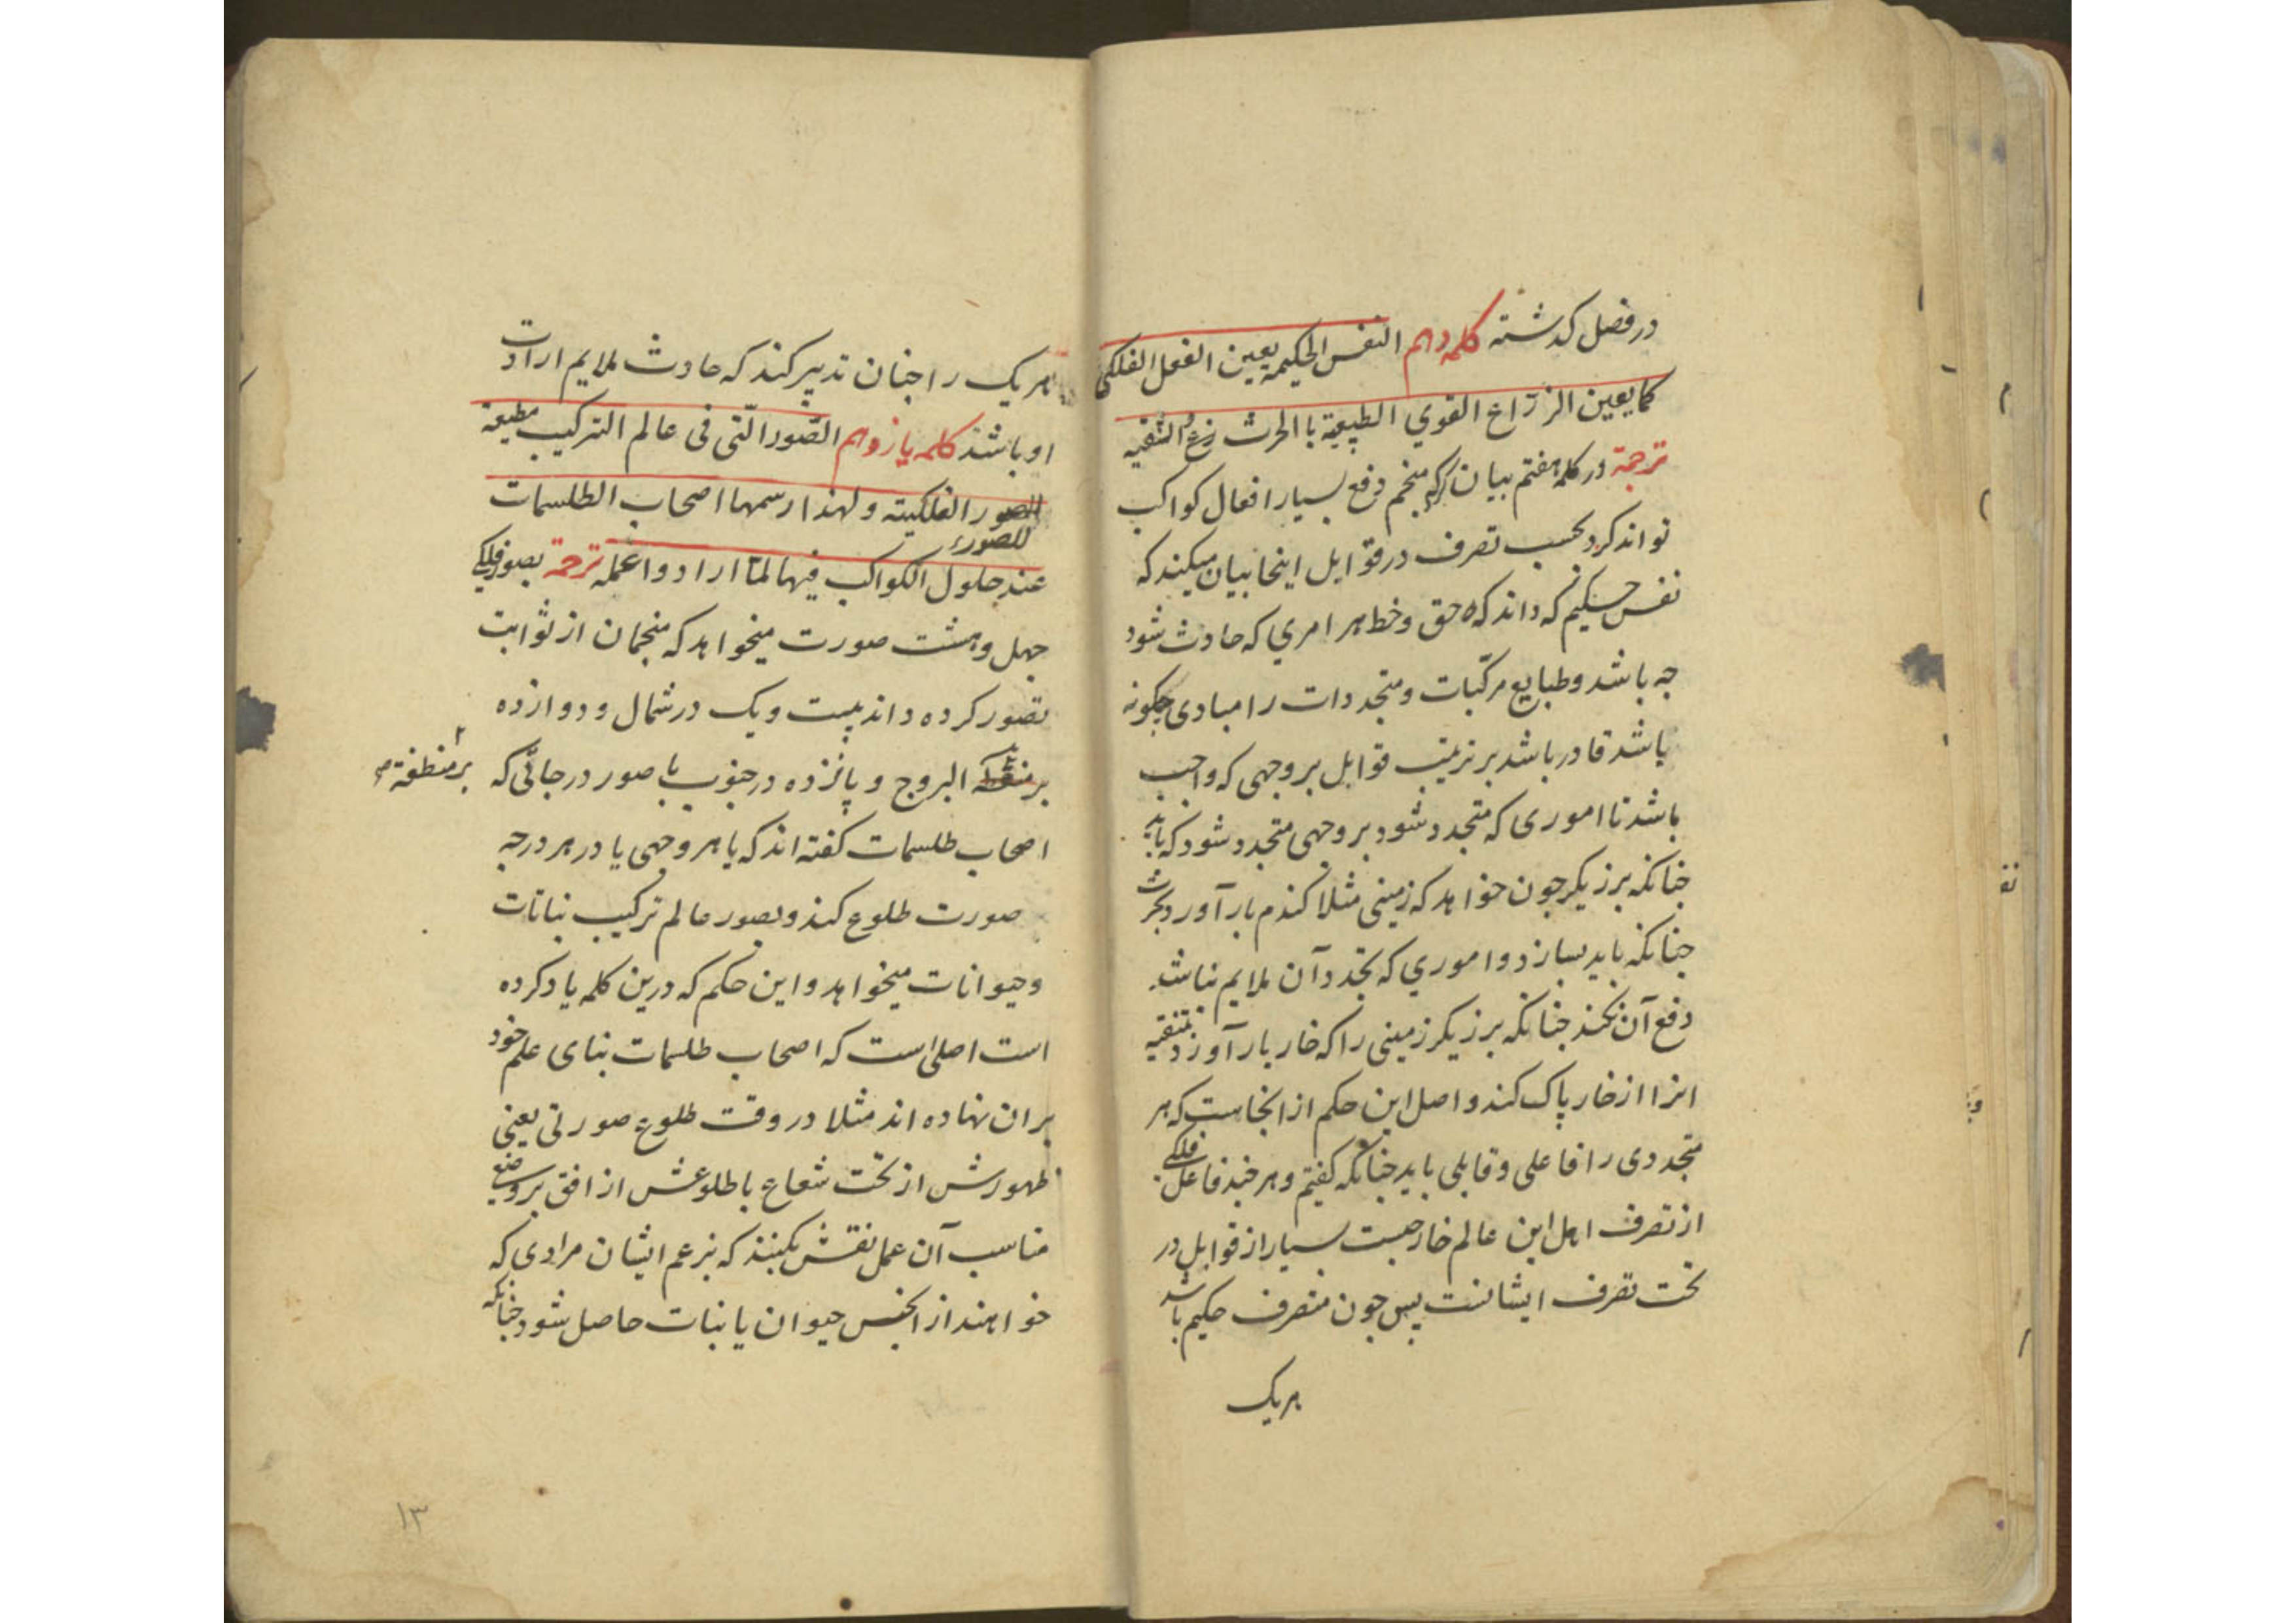 در فصل کدشته کلمه دهم النفس الحکیمه یعین الفعل الفلکی
کما یعین الزرّاع القوي الطبیعیة با الحرث و التنقیه
ترجمة در کلمه هفتم بیان کرد که منجم دفع بسیار افعال کواکب
تواند کرد بحسب تصرف در قوابل اینجا بیان میکند که
نفس حکیم که داند که حق و خط هر امري که حادث شود
جه باشد و طبایع مرکّبات و متجددات را مبادی جکونه
باشد قادر باشد بر ترتیب قوابل بر وجهی که واجب
باشد تا اموری که متجدد شود بر وجهی متجدد شود که باید
جنانکه برزیکر جون خواهد که زمینی مثلا کندم بار آورد بحرث
جنانکه باید بسازد و اموري که تجدد آن ملایم نباشد
دفع آن بکند جنانکه برزیکر زمینی را که خار بار آورد بتنقیه
انرا از خار پاک کند و اصل این حکم از انجاست که هر
متجددی را فاعلی و قابلی باید جنانکه کفتیم و هر جند فاعل فلکی
از تصرف اهل این عالم خارجست بسیار از قوابل در
تحت تصرف ایشانست پس جون متصرف حکیم باشد
هریک
هریک را جنان تدبیر کند که حادث ملایم ارادت
او باشد کلمه یازدهم الصّور الّتی فی عالم الترکیب مطیعة
الصور الفلکیته و لهذا رسمها اصحاب الطلسمات
للصور
عند حلول الکواکب فیها لمّا ارادوا عمله ترجمة بصور فلکی
جهل و هشت صورت میخواهد که منجمان از ثوابت
تصور کرده داند بیست و یک در شمال و دوازده
بر منطقه البروج و پانزده در جنوب یا صور درجاتی که
بر منطقة
اصحاب طلسمات کفته اند که با هر وجهی یا در هر درجه
صورت طلوع کند و بصور عالم ترکیب نباتات
و حیوانات میخواهد و این حکم که درین کلمه یاد کرده
است اصلی است که اصحاب طلسمات بنای علم خود
بران نهاده اند مثلا در وقت طلوع صورتی یعنی
ظهورش از تحت شعاع یا طلوعش از افق بر وضعی
مناسب آن عمل نقش بکنند که بزعم ایشان مرادی که
خواهند از انجنس حیوان یا نبات حاصل شود جنانکه
۱۳